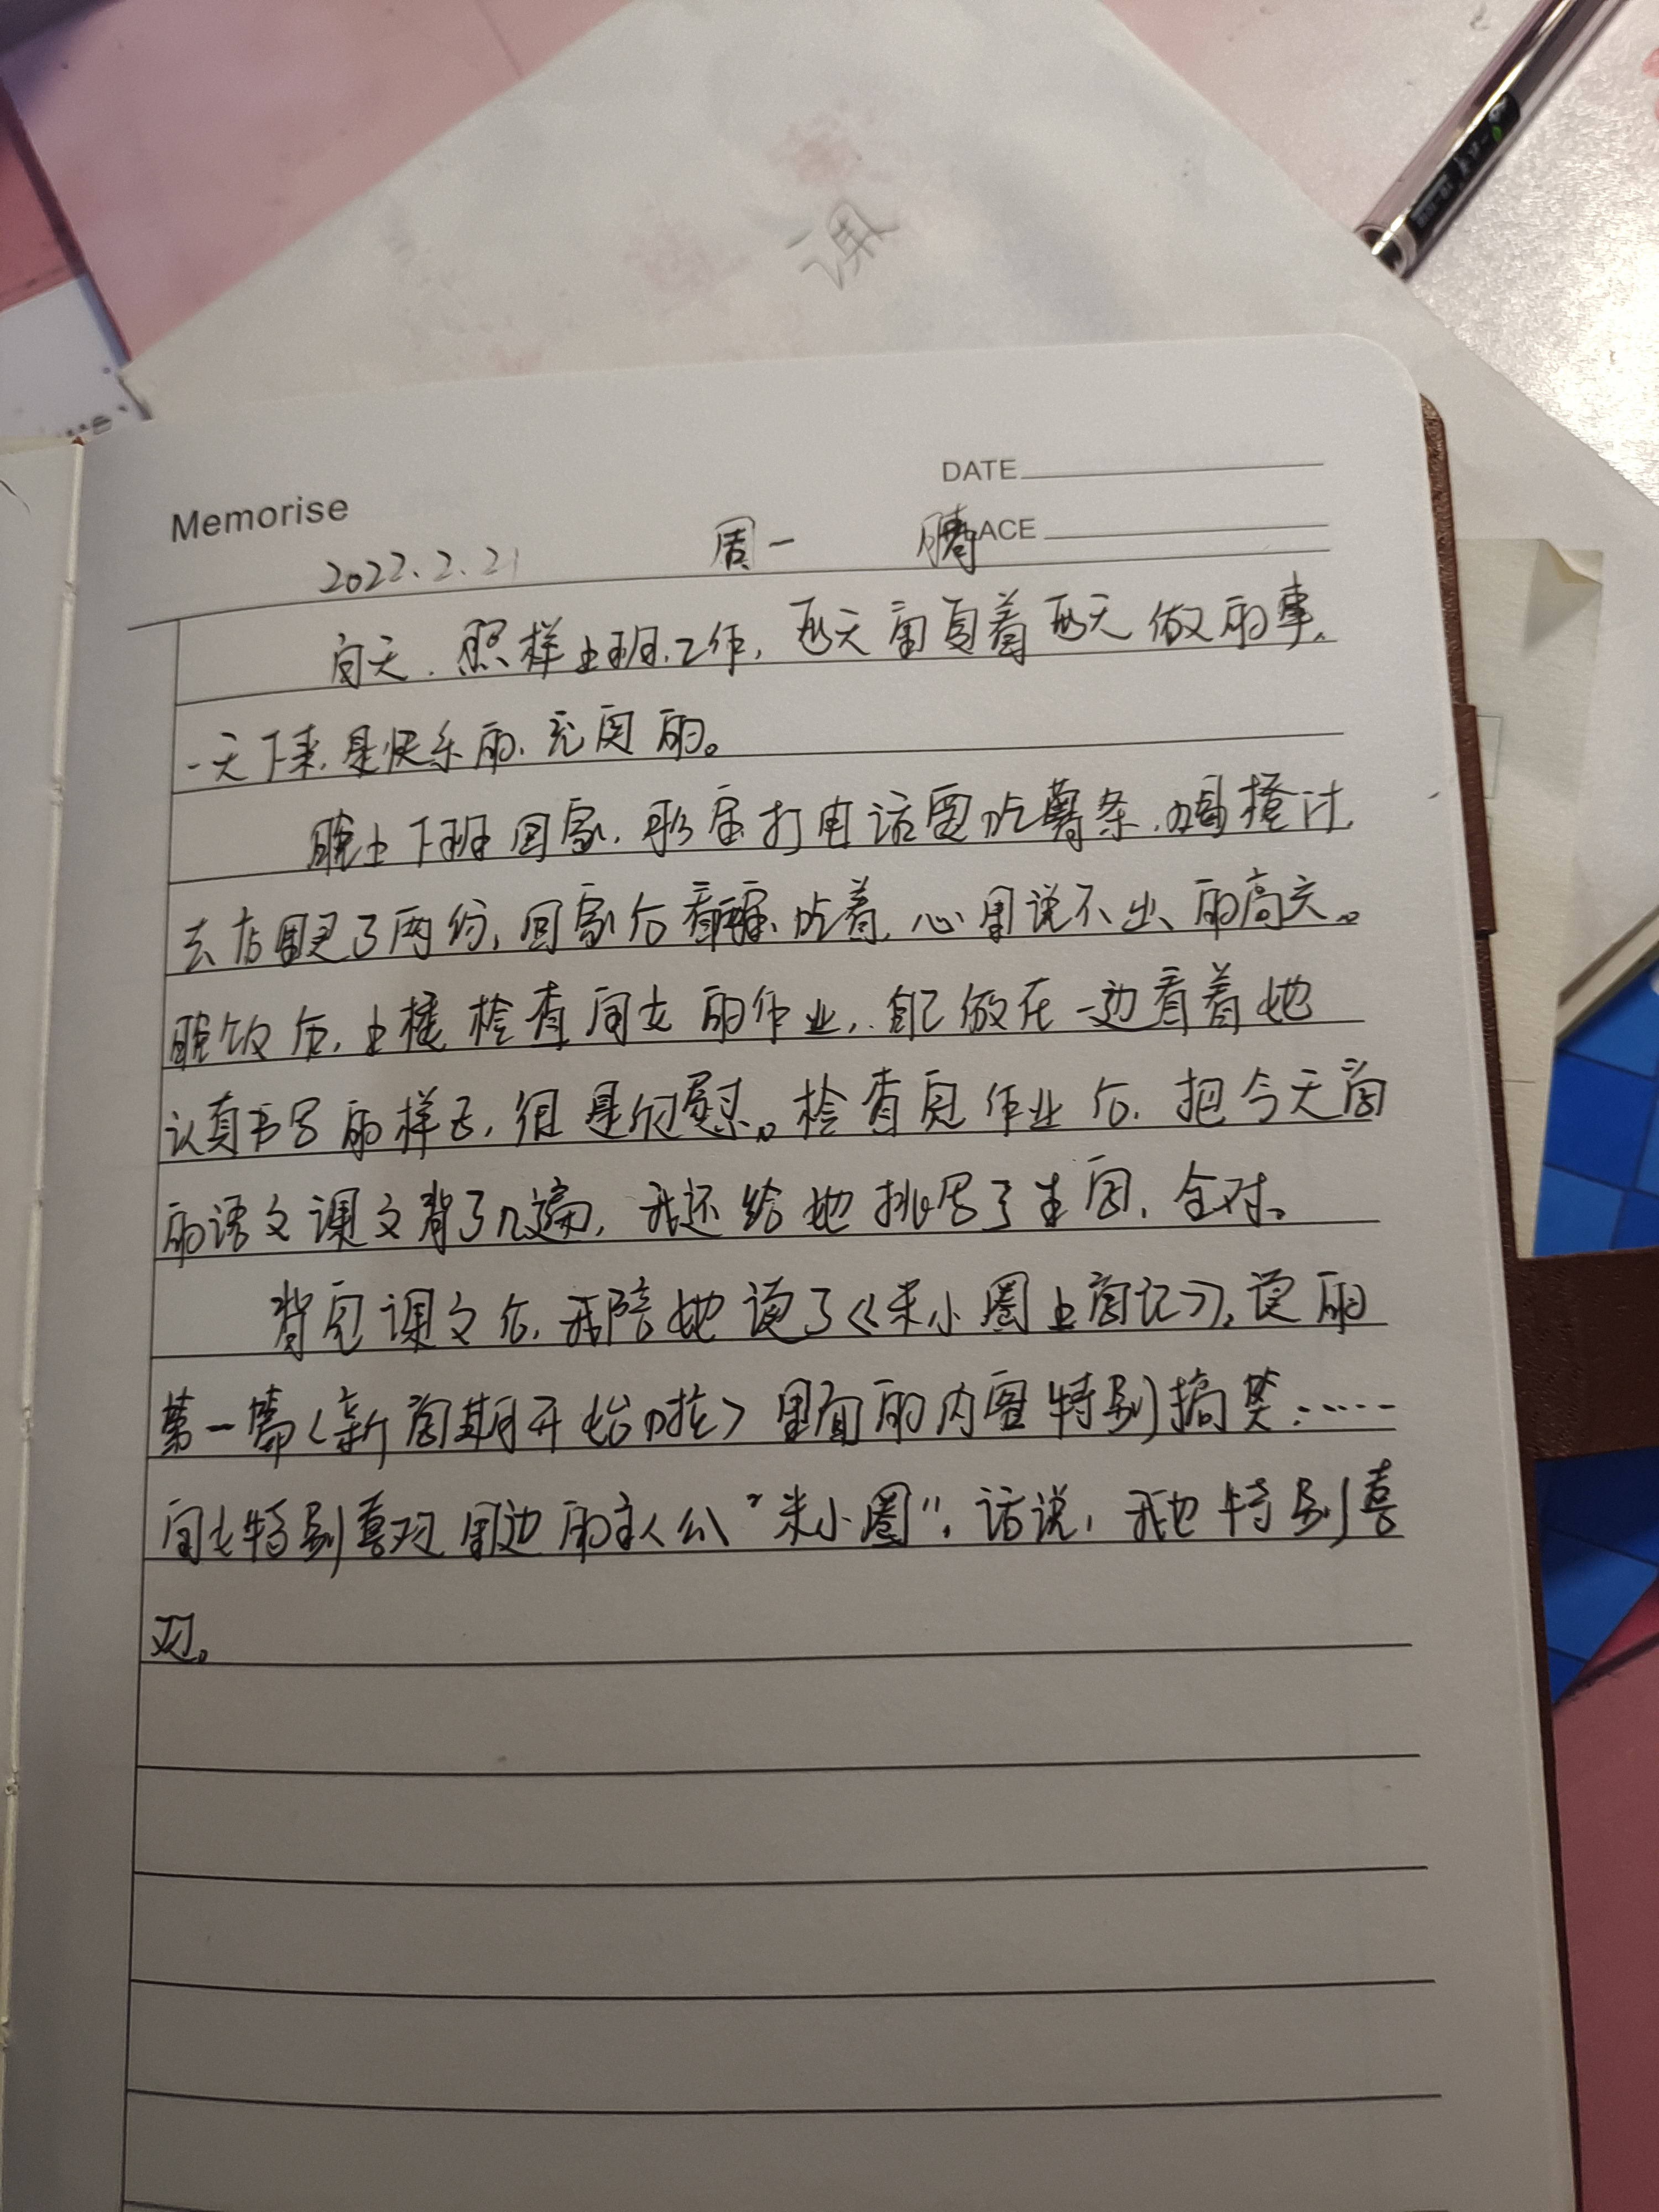 课
DATE
Memorise
PLACE
2022.2.21 周一 晴
白天.照样上班.工作,每天重复着每天做的事.
一天下来,是快乐的、充实的。
晚上下班回家,打电话要吃薯条,喝橙汁,
去店里买了两份,回家后看吃着,心里说不出的高兴。
晚饭后,上楼检查闺女的作业,自己做在一边看着她
认真书写的样子,很是欣慰。检查完作业后,把今天学
的语文课文背了几遍,我还给她挑写了生字,全对。
背完课文后,我陪她读了《米小圈上学记》,读的
第一篇<新学期开始啦>里面的内容特别搞笑......
闺女特别喜欢里边的主人公“米小圈”,话说,我也特别喜
欢。